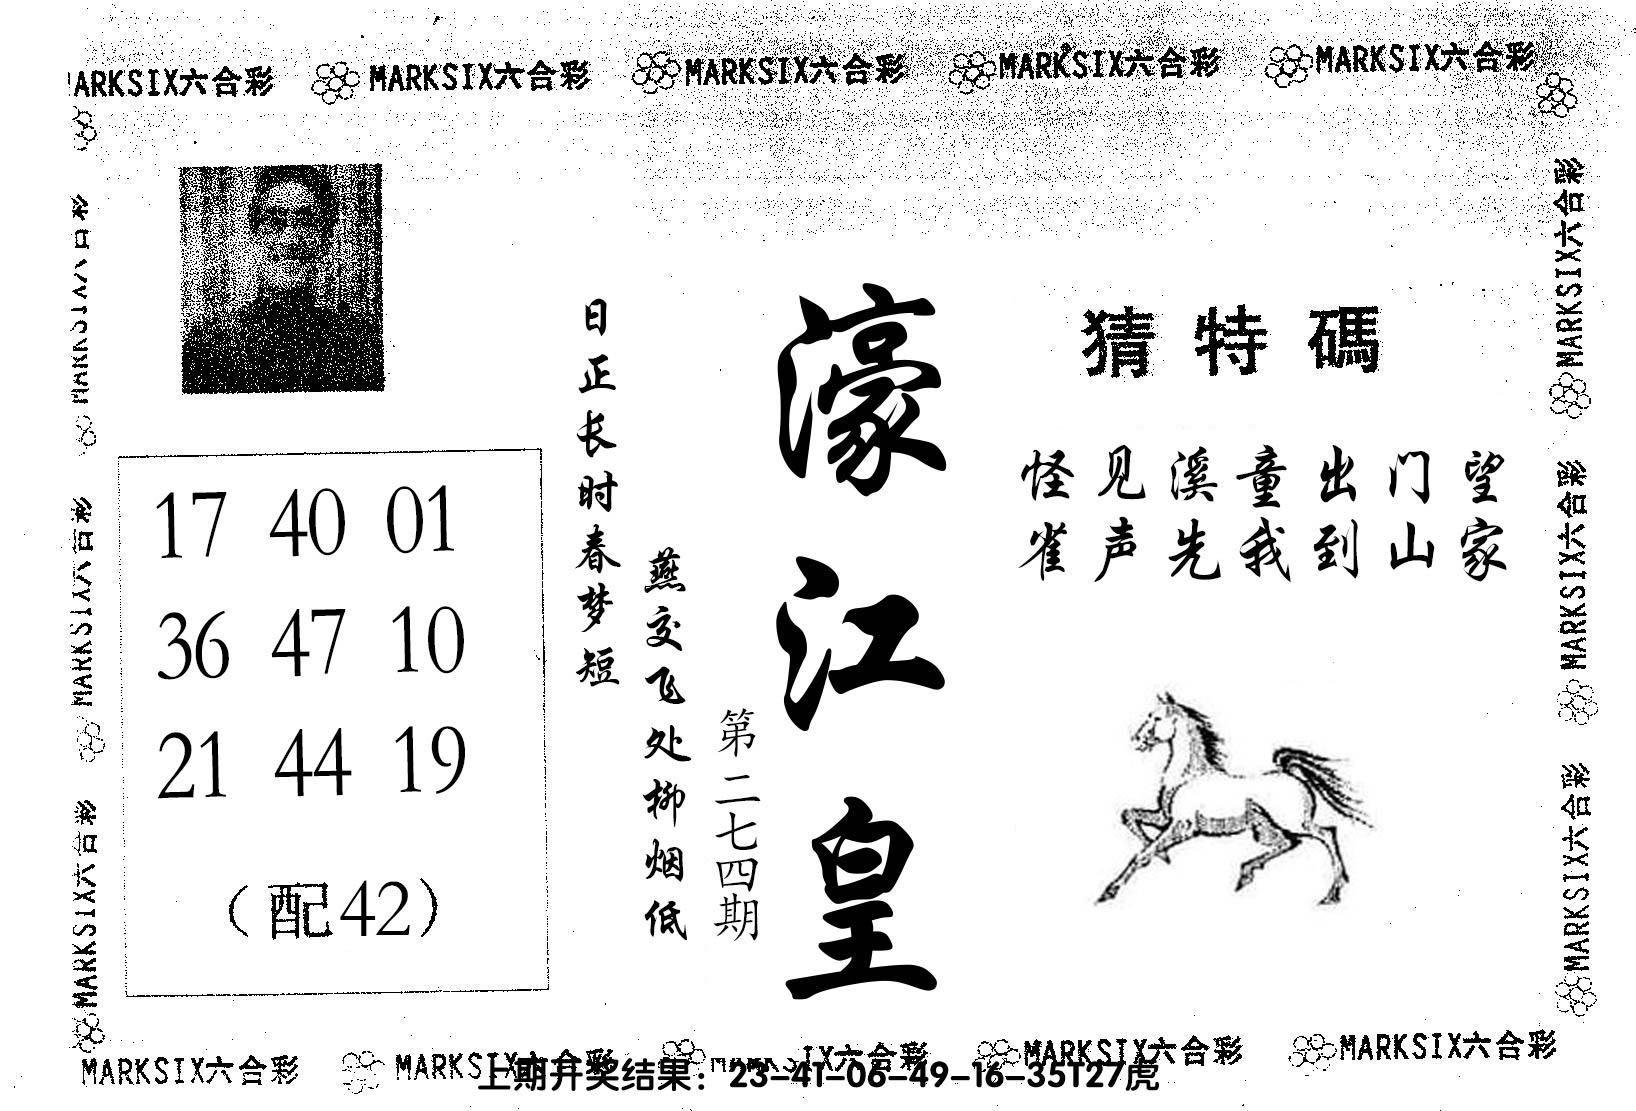 MARKSIX六合彩 MARKSIX六合彩 MARKSIX六合彩 MARKSIX六合彩
MARKSIX六合彩
MARKSIX六合彩
MARKSIX六合彩
MARKSIX六合彩
MARKSIX六合彩
MARKSIX六合彩
17 40 01
36 47 10
21 44 19
（配42）
日正长时春梦短
燕交飞处柳烟低
第二七四期
濠江皇
猜特碼
怪见溪童出门望
雀声先我到山家
MARKSIX六合彩 MARKSIX六合彩 MARKSIX六合彩 MARKSIX六合彩
上期开奖结果：23-41-06-49-16-35T27虎